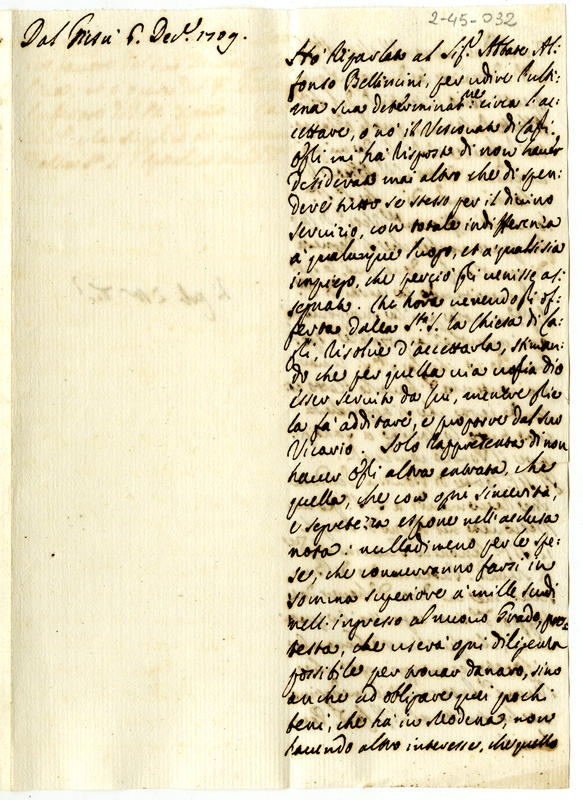 2-45-032
Dal Giesù 6. Dec.e 1709.
Hò Riparlato al Sig.r Abbate Al:
fonso Bellincini, per udire l'ulti:
ma sua determinat.ne circa l'ac:
cettare, ò nò il Vescovato di Cagli.
Egli mi hà Risposto di non haver
desiderato mai altro che di spen:
dere tutto se stesso per il divino
servizio, con totale indifferenza
à qualunque luogo, et à qualsisia
impiego, che perciò gli venisse as:
segnato. Che hora venendogli of:
ferta dalla S.tà S. la Chiesa di Ca:
gli, Risolve d'accettarla, stiman:
do che per quella via voglia Dio
esser servito da lui, mentre glie
la fà additare, e proporre dal suo
Vicario. Solo Rappresenta di non
haver egli altra entrata, che
quella, che con ogni sincerità,
e segretezza espone nell'acclusa
nota: nulladimeno per le spe:
se, che converranno farsi in
somma superiore à mille scudi
nell'ingresso al nuovo Grado, pro:
testa, che userà ogni diligenza
possibile per trovar danaro, sino
anche ad obligare quei pochi
beni, che hà in Modena, non
havendo altro interesse, che quello